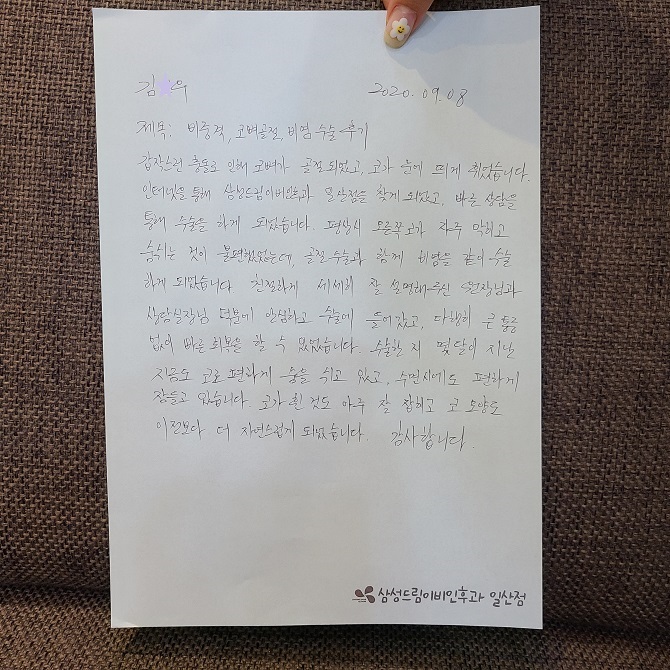 김 우 2020. 09. 08
제목: 비중격, 코뼈골절, 비염 수술 후기
갑작스런 충돌로 인해 코뼈가 골절되었고, 코가 눈에 띄게 휘었습니다.
인터넷을 통해 삼성드림이비인후과 일산점을 찾게 되었고, 빠른 상담을
통해 수술을 하게 되었습니다. 평상시 오른쪽 코가 자주 막히고
숨쉬는 것이 불편했었는데, 골절 수술과 함께 비염을 같이 수술
하게 되었습니다. 친절하게 세세히 잘 설명해주신 원장님과
상담실장님 덕분에 안심하고 수술에 들어갔고, 다행히 큰 통증
없이 빠른 회복을 할 수 있었습니다. 수술한 지 몇달이 지난
지금도 코로 편하게 숨을 쉬고 있고, 수면시에도 편하게
잠들고 있습니다. 코가 휜 것도 아주 잘 잡히고 코 모양도
이전보다 더 자연스럽게 되었습니다. 감사합니다.
삼성드림이비인후과 일산점